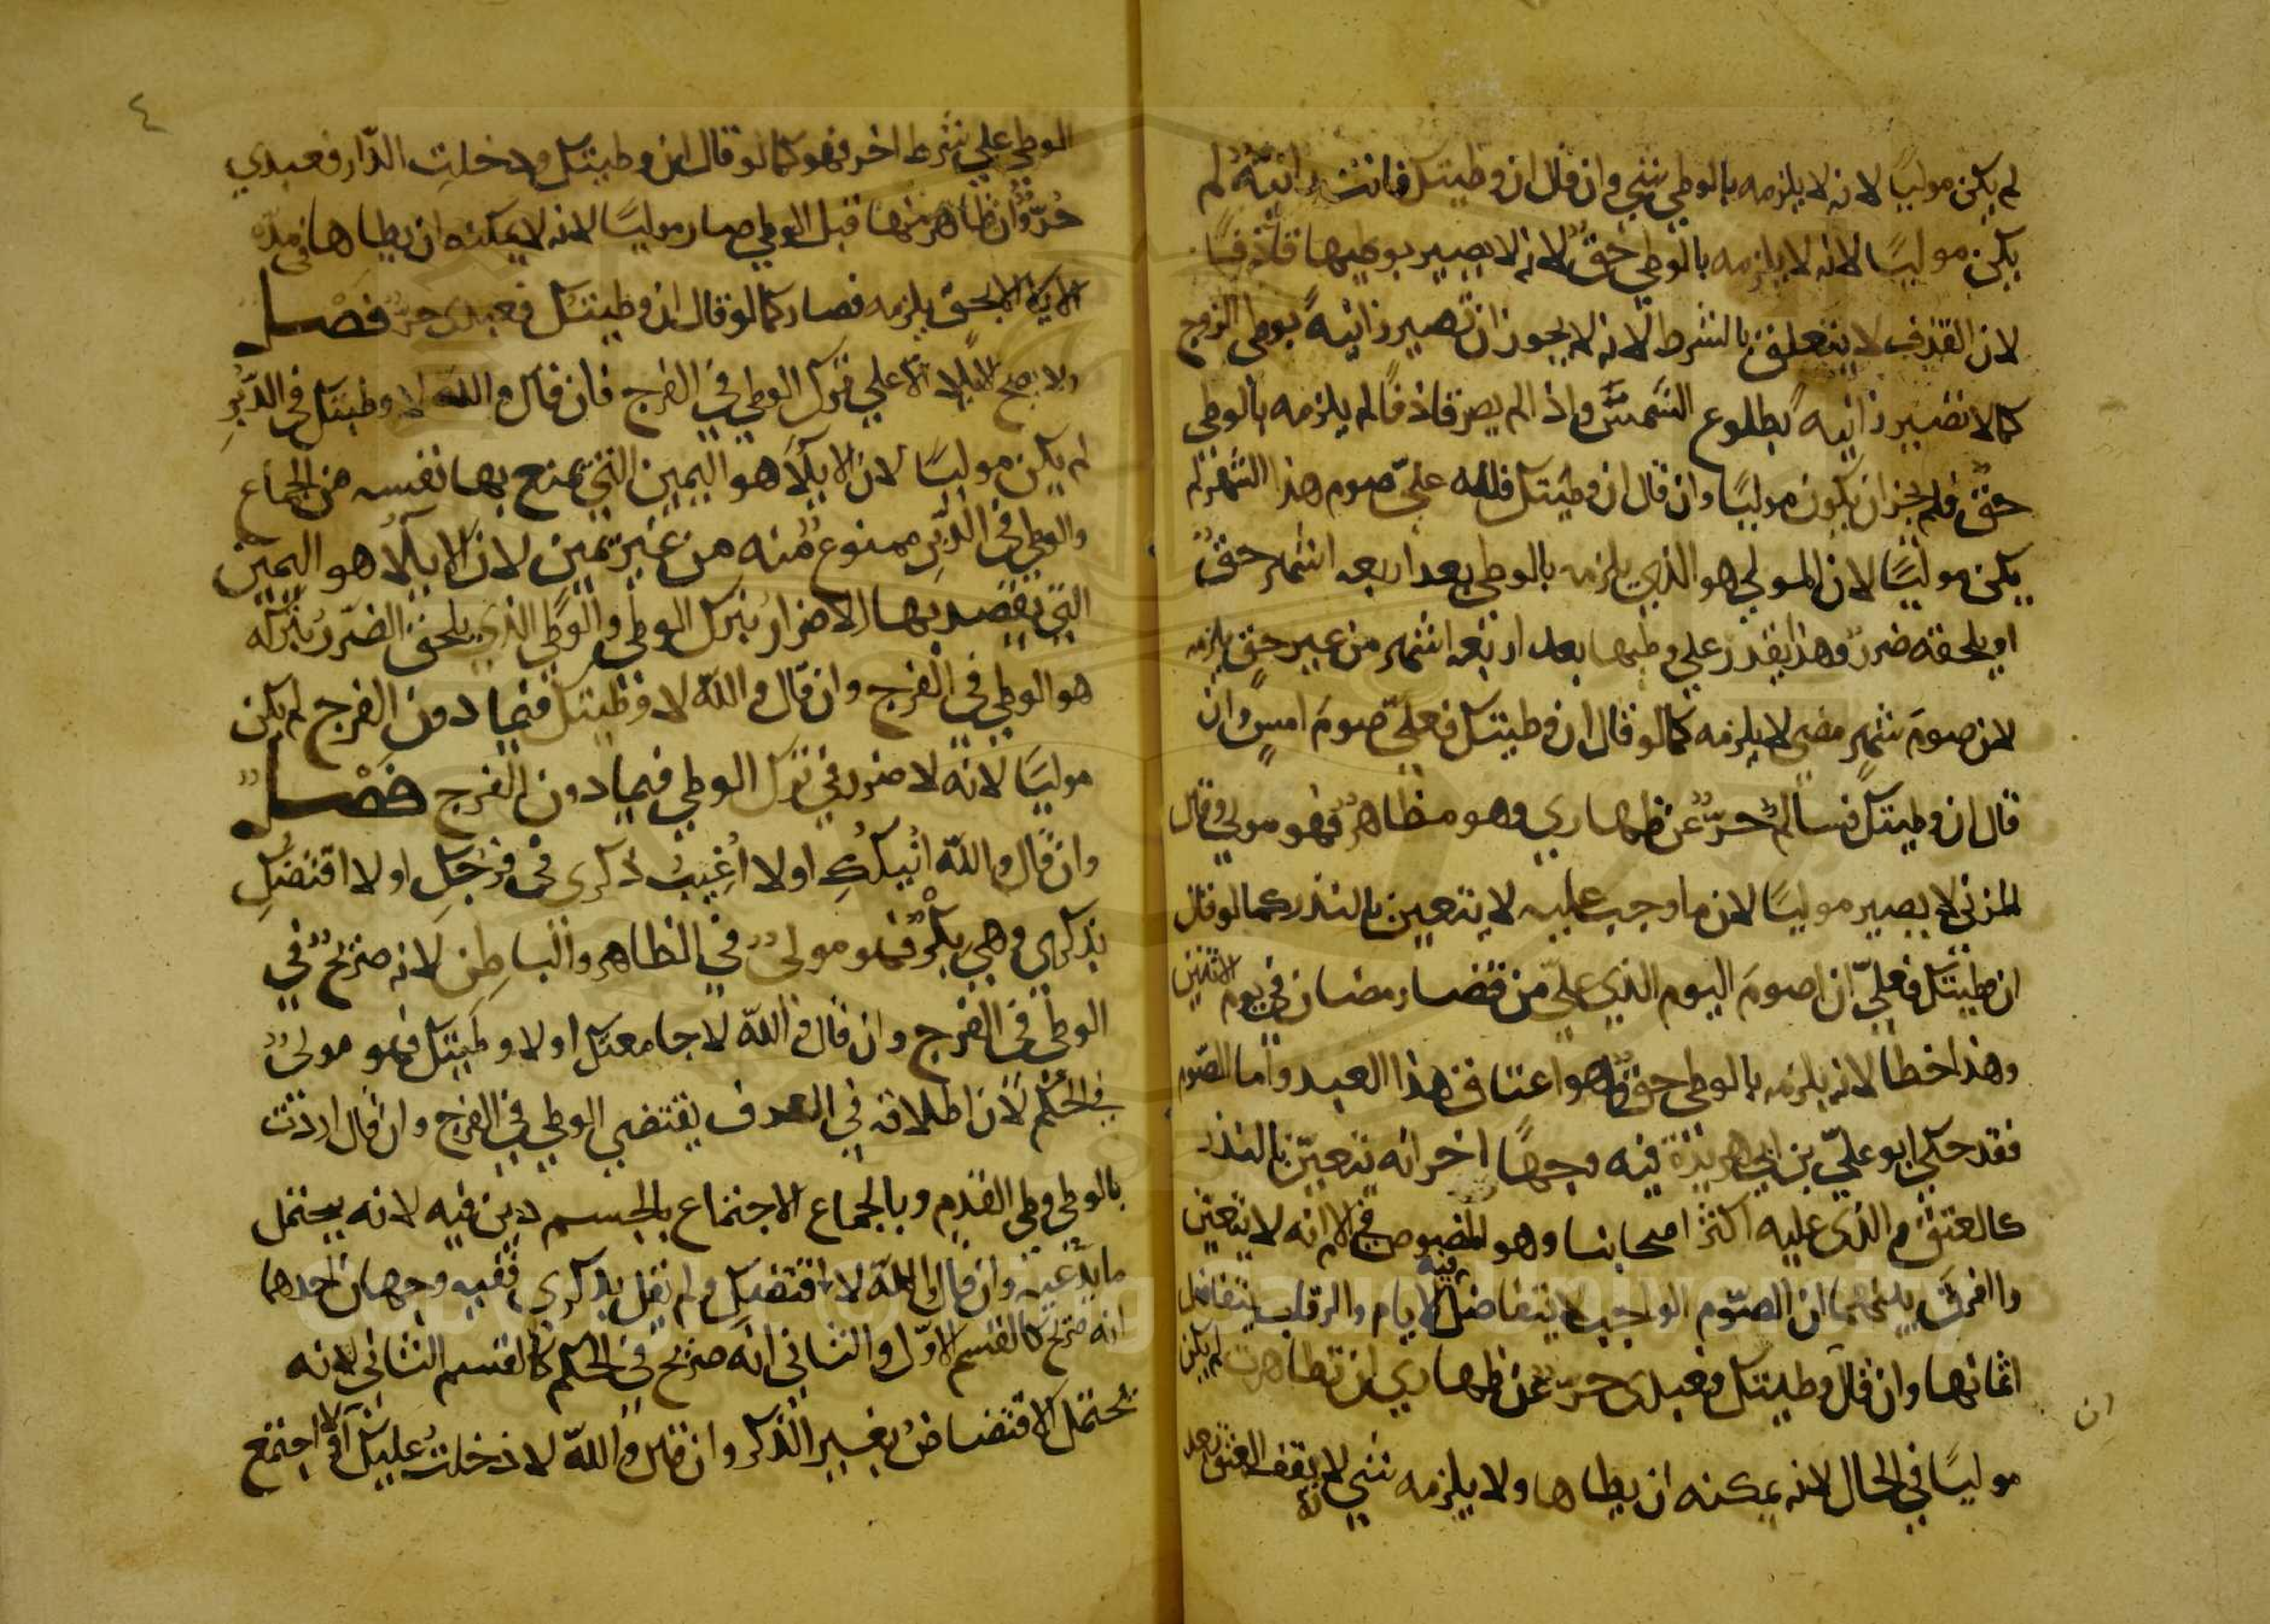 لم يكن موليًا لانه لا يلزمه بالوطي شي وان قال ان وطيتك فانت زانيةٌ لم
يكن موليًا لانه لا يلزمه بالوطي حقٌ لانه لا يصير بوطيها قاذفًا
لان القذف لا يتعلق بالشرط لانه لا يجوز ان تصير زانيةً بوطي الزوج
كما لا تصير زانيةً بطلوع الشمس واذا لم يصر قاذفًا لم يلزمه بالوطي
حقٌ فلم يجز ان يكون موليًا وان قال ان وطيتك فلله عليّ صوم هذا الشهر لم
يكن موليًا لان المولي هو الذي يلزمه بالوطي بعد اربعه اشهر حقٌ
او يلحقه ضررٌ وهذا يقدر علي وطيها بعد اربعه اشهر من غير حقٍ يلزمه
لان صومَ شهرٍ مضي لا يلزمه كما لو قال ان وطيتك فعليّ صومَ امسٍ وان
قال ان وطيتك فسالمٌ حرٌّ عن ظهاري وهو مظاهرٌ فهو مولي وقال
المزني لا يصير موليًا لان ما وجب عليه لا يتعين بالنذر كما لو قال
ان وطيتك فعليّ ان اصومَ اليوم الذي عليّ من قضا رمضان في يوم الاثنين
وهذا خطا لانه يلزمه بالوطي حقٌ وهو اعتاق هذا العبد واما الصوم
فقد حكي ابو عليّ بن ابي هريرة فيه وجهًا اخر انه يتعيّن بالنذر
كالعتق والذي عليه اكثر اصحابنا وهو المنصوص في الام انه لا يتعين
واالفرق بينهما ان الصوم الواجب لا يتفاضل فيه الايام والرقاب يتفاضل
اثمانها وان قال وطيتك فعبدي حرٌّ عن ظهاري ان تظاهرت لم يكن
موليًا في الحال لانه يمكنه ان يطاها ولا يلزمه شي لانه يقف العتق بعد
ان
٤
الوطي علي شرط اخر فهو كما لو قال ان وطيتك ودخلت الدّار فعبدي
حُرٌّ وان ظاهر منها قبل الوطي صار موليًا لانه لا يمكنه ان يطاها في مدة
الايلا الا بحق يلزمه فصار كما لو قال ان وطيتك فعبدي حرٌّ فصل
ولا يصح الايلا الا علي ترك الوطي في الفرج فان قال والله لا وطيتك في الدّبُرِ
لم يكن موليًا لان الايلا هو اليمين التي يمنع بها نفسه من الجماع
والوطي في الدبر ممنوعٌ منه من غير يمين لان الايلا هو اليمين
التي يقصد بها الاضرار بترك الوطي والوطي الذي يلحق الضرر بتركه
هو الوطي في الفرج وان قال والله لا وطيتك فيما دون الفرج لم يكن
موليًا لانه لا ضرر في ترك الوطي فيما دون الفرج فصل
وان قال والله انيكُكِ او لا اُغيبُ ذكري في فرجكِ او لا اقتضكِ
بذكري وهي بكرٌ فهو موليٌ في الظاهر والباطن لانه صريحٌ في
الوطي في الفرج وان قال والله لا جامعتك او لا وطيتك فهو موليٌ
في الحُكم لان اطلاقه في العرف يقتضي الوطي في الفرج وان قال اردت
بالوطي وطي القدم وبالجماع الاجتماع بالجسم دين فيه لانه يحتمل
ما يدّعيه وان قال والله لا اقتضكِ ولم يقل بذكري ففيه وجهان احدهما
انه صريح كالقسم الاوّل والثاني انه صريح في الحكم كالقسم الثاني لانه
يحتمل الاقتضاضُ بغير الذكر وان قال والله لا دخلتُ عليك او لا اجتمع